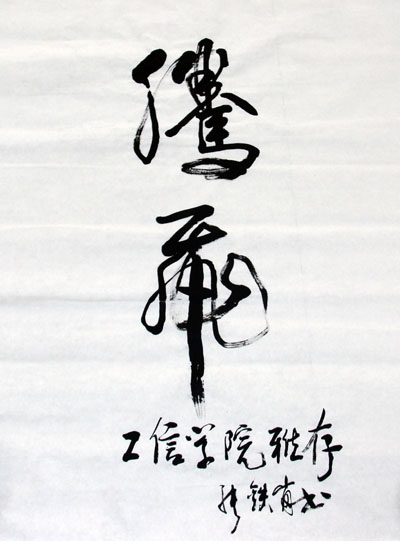 腾
飞
工信学院雅存
张铁肖书